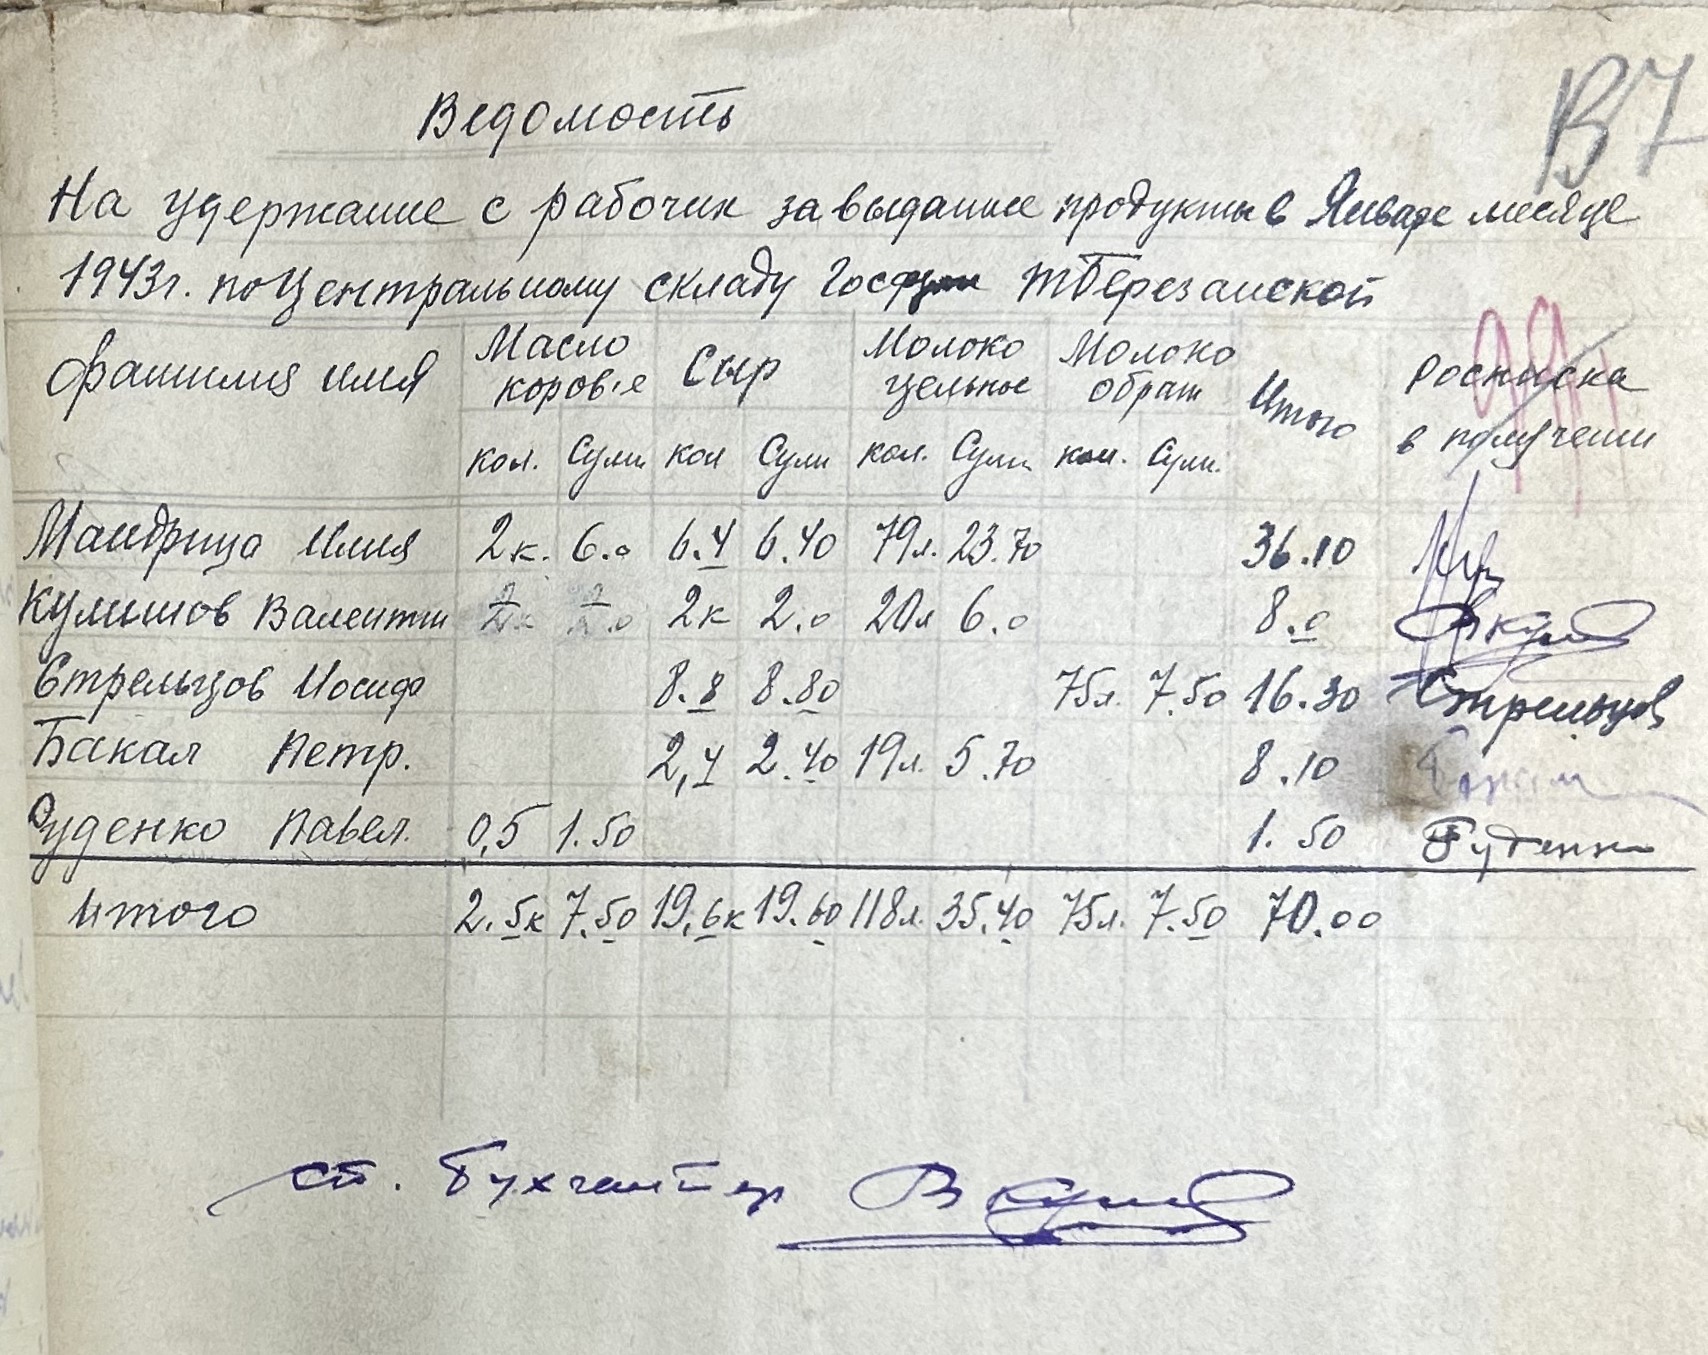 В7
Ведомость
На удержание с рабочих за выданные продукты в Январе месяце
1943г. по Центральному складу Тберезанской
Фамилия имя Масло коров-е Сыр Молоко цельное Молоко обрат Итого Росписка в получении
кол. Сумм кол Сумм кол. Сумм кол. Сумм.
Мандрица Илия 2к. 6.0 6.4 6.40 79л. 23.70 36.10
Кулишов Валентин 2к 2.0 20л 6.0 8.0 Вкул
Стрельцов Иосиф 8.8 8.80 75л. 7.50 16.30 Стрельцов
Бакал Петр. 2,4 2.40 19л. 5.70 8.10
Руденко Павел. 0,5 1.50 1.50 Руденко
Итого 2.5к 7.50 19.6к 19.60 118л. 35.40 75л. 7.50 70.00
ст. Бухгалтер Вкул